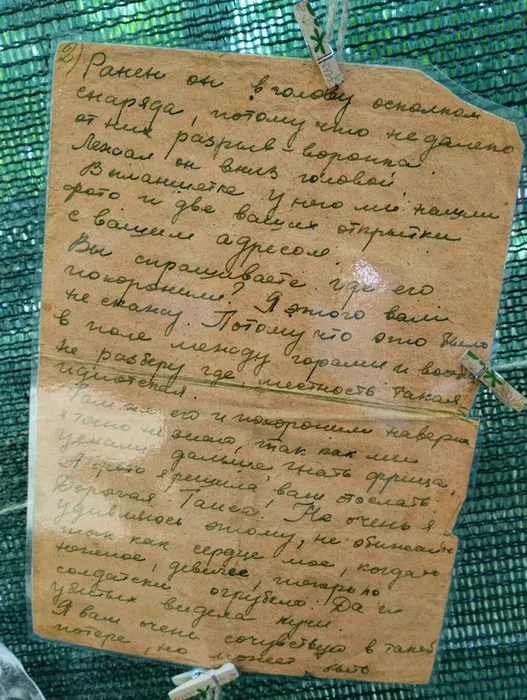 2) Ранен он в голову осколком
снаряда, потому что недалеко
от них разрыв-воронка.
Лежал он вниз головой.
В планшетке у него мы нашли
фото и две ваших открытки
с вашим адресом.
Вы спрашиваете где его
похоронили? Я этого вам
не скажу. Потому что это было
в поле между горами и
не разберу где, местность такая
идиотская.
Там же его и похоронили наверно
я точно не знаю, так как мы
уехали дальше гнать фрица,
А фото я решила вам послать
Дорогая Таиса! Не очень я
удивляюсь этому, не обижайте
так как сердце мое, когда то
нежное, девичье, теперь по
солдатски огрубело. Да и
убитых видела кучи.
Я вам очень сочувствую в такой
потере, но может быть